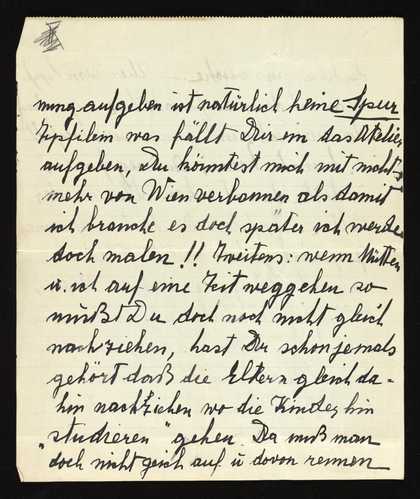 nung aufgeben ist natürlich keine Spur
Zipfilein was fällt Dir ein das Atelier
aufgeben, Du könntest mich mit nichts
mehr von Wien verbannen als damit
ich brauche es doch später ich werde
doch malen!! Zweitens: wenn Mutter
u. ich auf eine Zeit weggehen so
mußt Du doch noch nicht gleich
nachziehen, hast Du schon jemals
gehört daß die Eltern gleich da-
hin nachziehen wo die Kinder hin
„studieren" gehen. Da muß man
doch nicht gleich auf u davon rennen